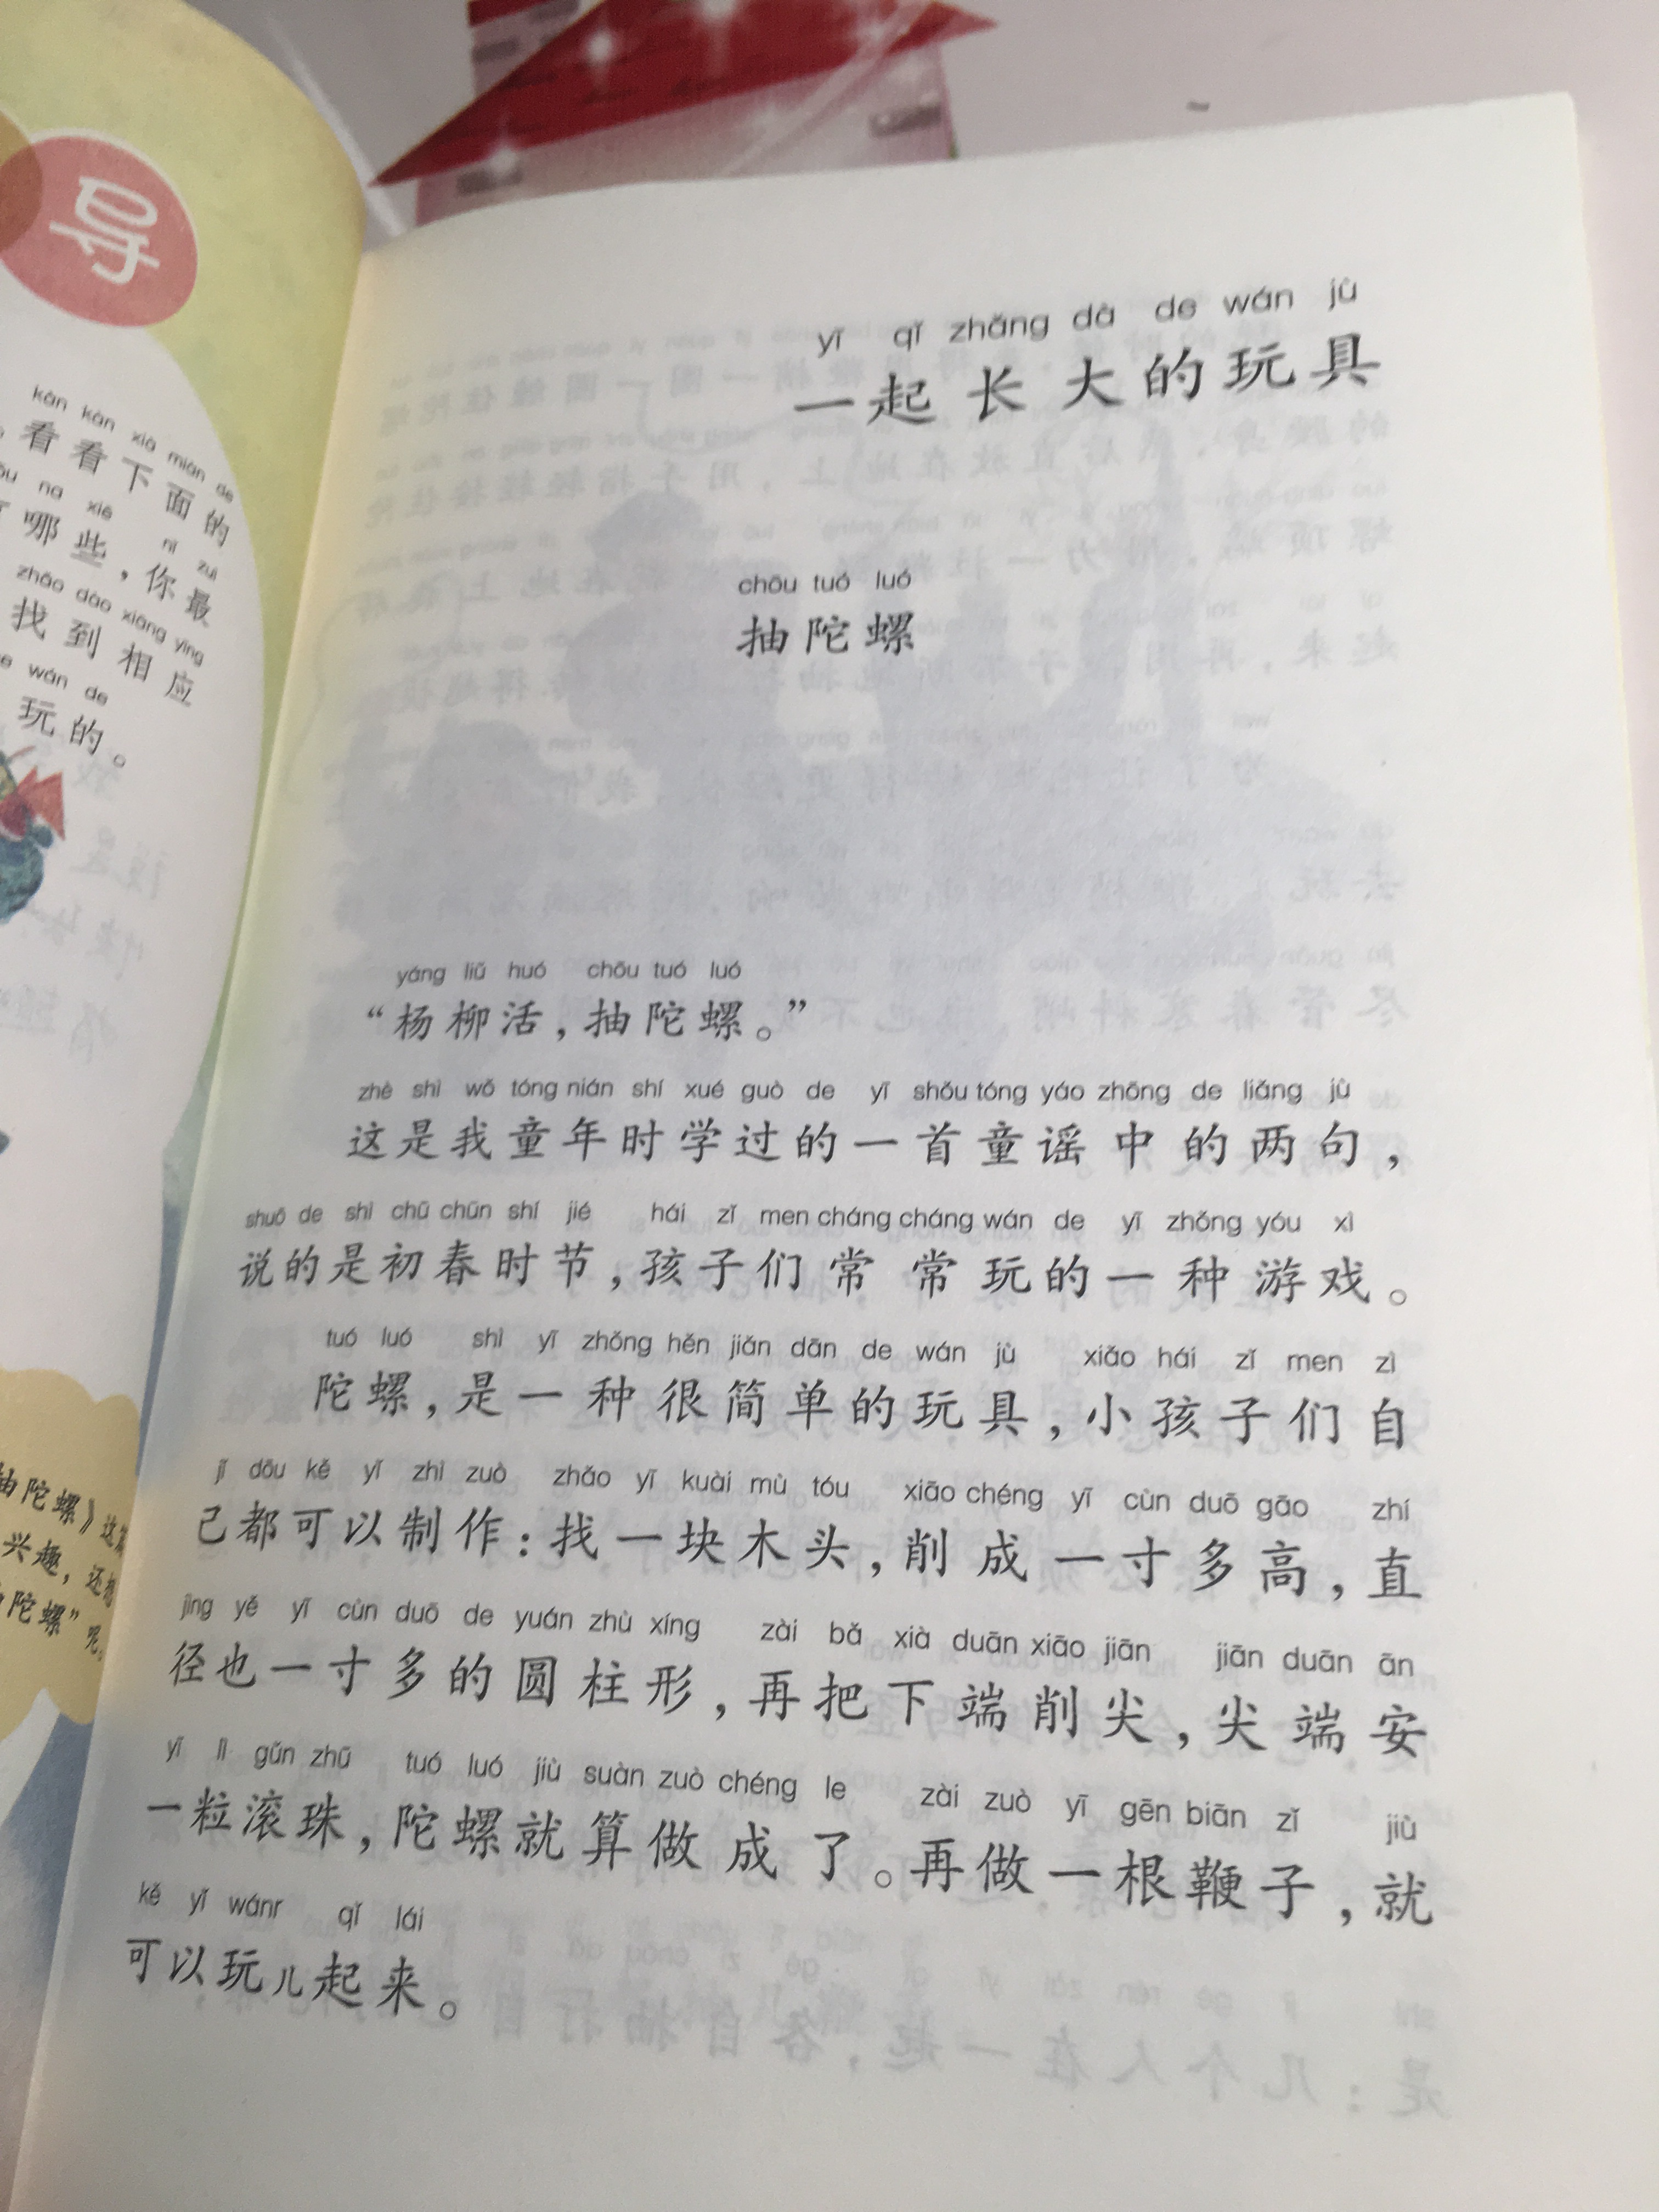 导
kàn kàn xià miàn de
看看下面的
nǎ xiē nǐ zuì
哪些，你最
zhǎo dào xiāng yìng
找到相应
wán de
玩的。
抽陀螺》这篇
兴趣，还想
陀螺”呢
yī qǐ zhǎng dà de wán jù
一起长大的玩具
chōu tuó luó
抽陀螺
yáng liǔ huó chōu tuó luó
“杨柳活，抽陀螺。”
zhè shì wǒ tóng nián shí xué guò de yī shǒu tóng yáo zhōng de liǎng jù
这是我童年时学过的一首童谣中的两句，
shuō de shì chū chūn shí jié hái zǐ men cháng cháng wán de yī zhǒng yóu xì
说的是初春时节，孩子们常常玩的一种游戏。
tuó luó shì yī zhǒng hěn jiǎn dān de wán jù xiǎo hái zǐ men zì
陀螺，是一种很简单的玩具，小孩子们自
jǐ dōu kě yǐ zhì zuò zhǎo yī kuài mù tóu xiāo chéng yī cùn duō gāo zhí
己都可以制作：找一块木头，削成一寸多高，直
jìng yě yī cùn duō de yuán zhù xíng zài bǎ xià duān xiāo jiān jiān duān ān
径也一寸多的圆柱形，再把下端削尖，尖端安
yī lì gǔn zhū tuó luó jiù suàn zuò chéng le zài zuò yī gēn biān zǐ jiù
一粒滚珠，陀螺就算做成了。再做一根鞭子，就
kě yǐ wánr qǐ lái
可以玩儿起来。